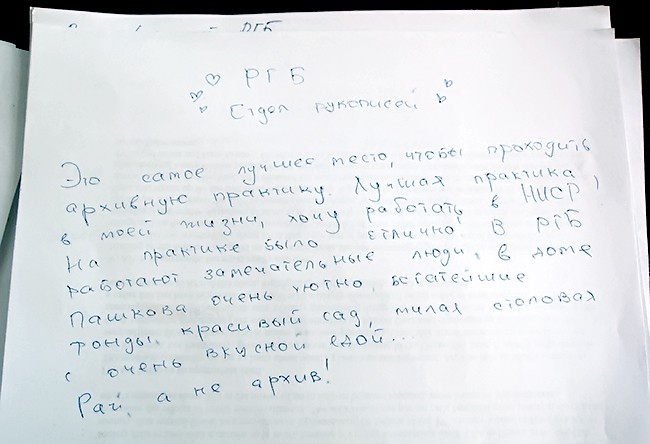 РГБ
РГБ
Отдел рукописей
Это самое лучшее место, чтобы проходить
архивную практику. Лучшая практика
в моей жизни, хочу работать в НИОР!
На практике было отлично! В РГБ
работают замечательные люди, в доме
Пашкова очень уютно, богатейшие
фонды, красивый сад, милая столовая
с очень вкусной едой...
Рай, а не архив!